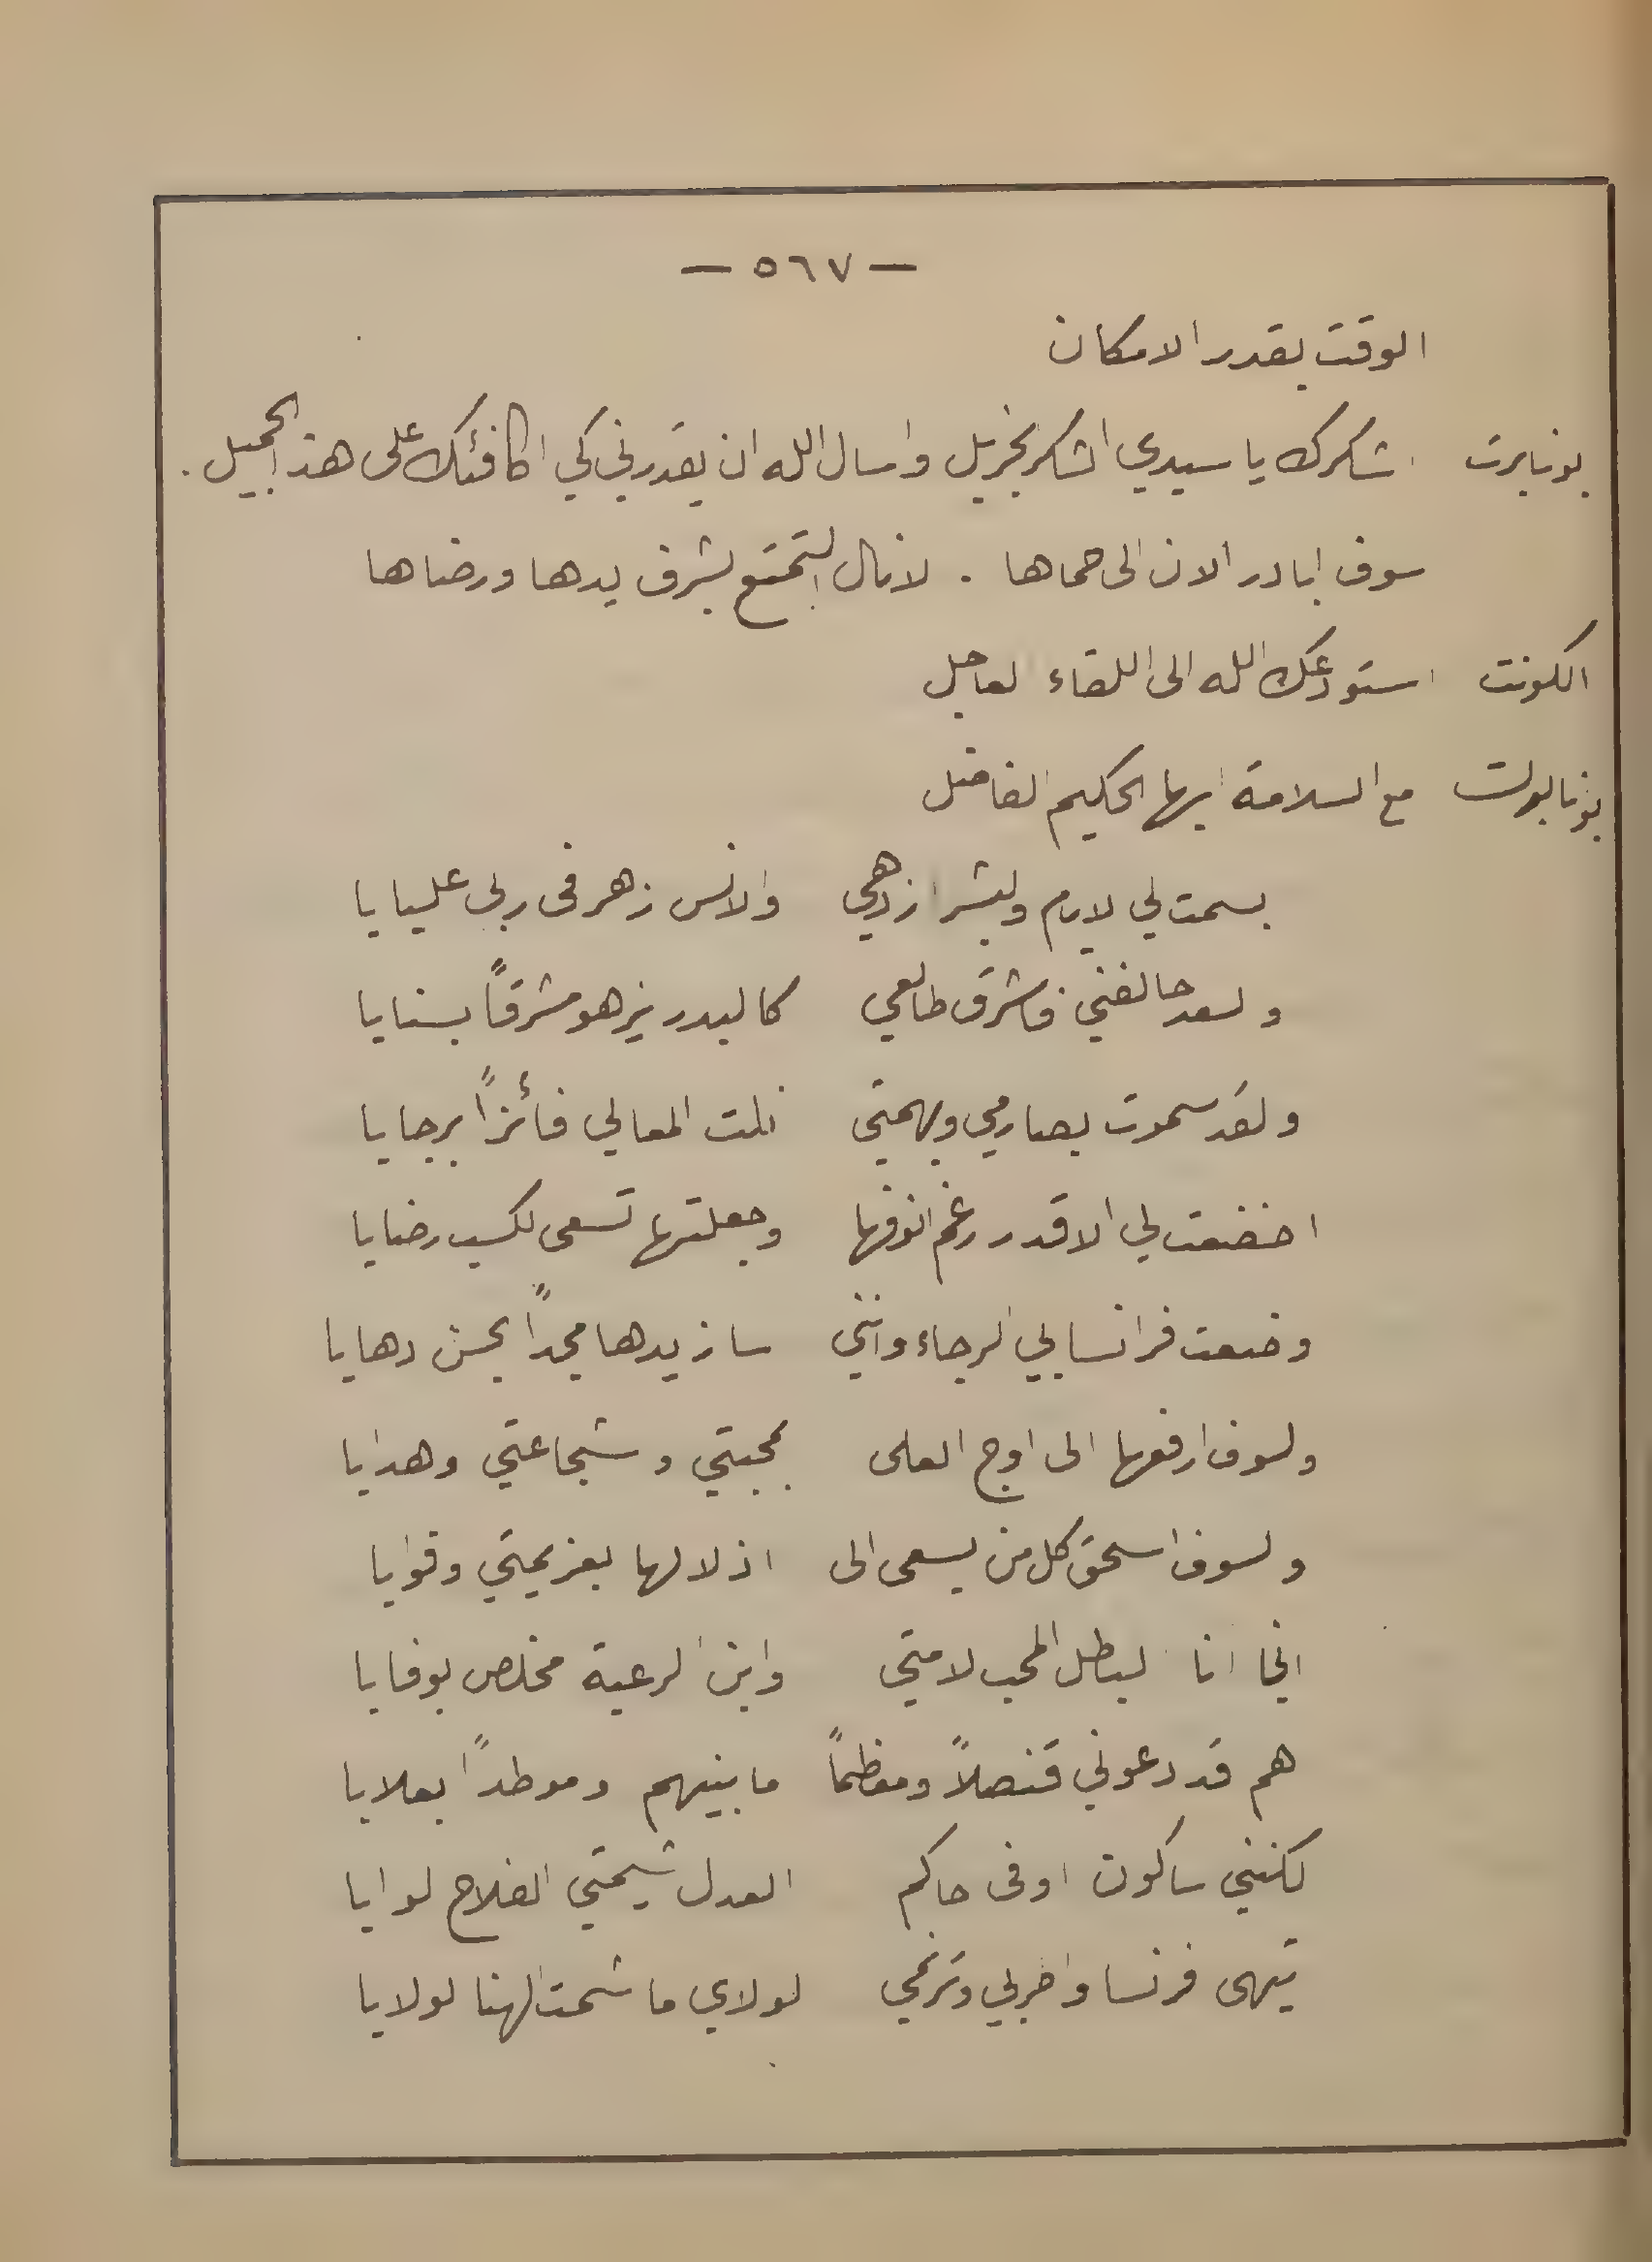 — ٥٦٧ —
الوقت بقدر الامكان
بونابرت اشكرك يا سيدي الشكر الجزيل واسال الله ان يقدرني كي اكافئك على هذا الجميل .
سوف ابادر الان الى حماها . لانال التمتع بشرف يدها ورضاها
الكونت استودعك الله الى اللقاء العاجل
بونابرت مع السلامة ايها الحكيم الفاضل
بسمت لي الايام والبشر ازدهي والانس زهر في ربى عليايا
والسعد حالفني فاشرق طالعي كالبدر يزهو مشرقاً بسنايا
ولقد سموت بصارمي وبهمتي نلت المعالي فائزاً برجايا
اخضعت لي الاقدار رغم انوفها وجعلتها تسعى لكسب رضايا
وضعت فرانسا بي الرجاء وانني سازيدها مجداً بحسن دهايا
ولسوف ارفعها الى اوج العلى بمحبتي وشجاعتي وهدايا
ولسوف اسحق كل من يسعى الى اذلالها بعزيمتي وقوايا
اني انا البطل المحب لامتي وابن الرعية مخلص بوفايا
هم قد دعوني قنصلاً ومعظماً ما بينهم وموطداً بعلايا
لكنني ساكون اوفى حاكم العدل شيمتي الفلاح لوايا
تيهى فرنسا واطربي وترنمي لولاي ما شمت الهنا لولايا